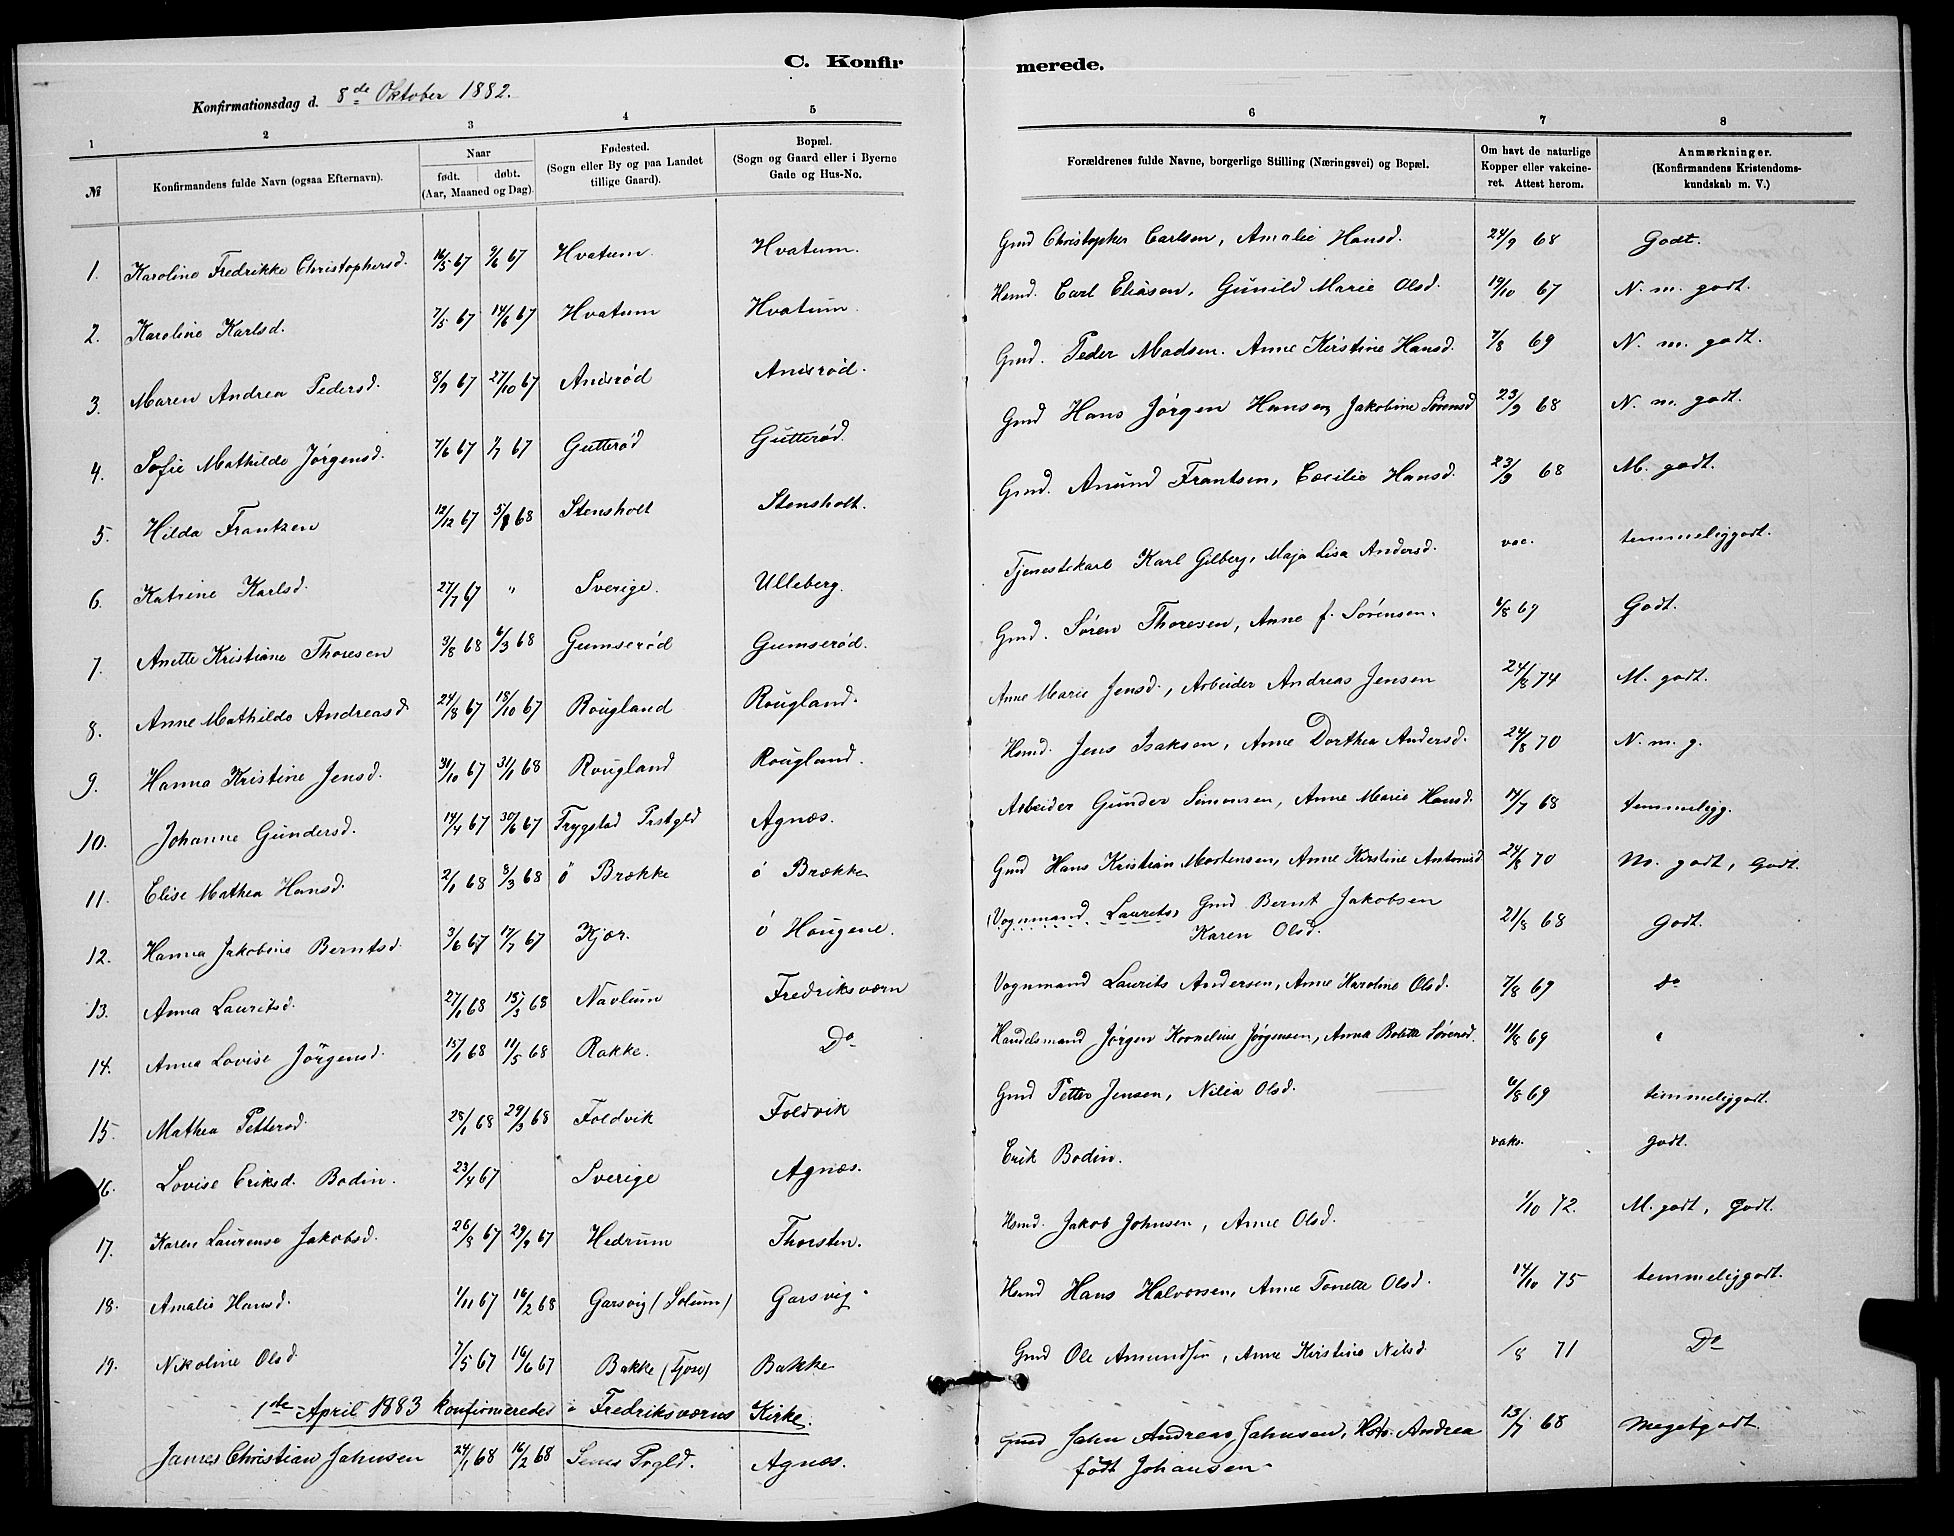 C. Konfirmerede.
Konfirmationsdag d. 8de Oktober 1882.
1 2 3 4 5 6 7 8
№ Konfirmandens fulde Navn (ogsaa Efternavn). Naar født. døbt. (Aar, Maaned og Dag). Fødested. (Sogn eller By og paa Landet tillige Gaard). Bopæl. (Sogn og Gaard eller i Byerne Gade og Hus-No. Forældrenes fulde Navne, borgerlige Stilling (Næringsvei) og Bopæl. Om havt de naturlige Kopper eller vakcineret. Attest herom. Anmærkninger. (Konfirmandens Kristendomskundskab m. V.)
1. Karoline Fredrikke Christophersd. 16/5 67 9/6 67 Hvatum. Hvatum. Gmd Christopher Carlsen, Amalie Hansd. 24/9 68 Godt.
2. Karoline Karlsd. 7/5 67 14/6 67 Hvatum Hvatum. Hsmd. Carl Eliasen, Gunild Marie Olsd. 19/10 67 N. m. godt.
3. Maren Andrea Pedersd. 8/9 67 27/10 67 Anisrød Anisrød. Gmd. Peder Madsen. Anne Kirstine Hansd. 7/8 69 N. m. godt.
4. Sofie Mathilde Jørgensd. 7/6 67 1/7 67 Gutterød Gutterød. Gmd Hans Jørgen Hansen, Jakobine Sørensd 23/9 68 N. m. godt.
5. Hilda Frantzen 12/12 67 5/1 68 Stensholt Stensholt. Gmd. Anund Frantsen, Cecilie Hansd. 23/9 68 M. godt.
6. Katrine Karlsd. 27/7 67 " Sverige. Ulleberg. Tjenestekarl Karl Gilberg, Maja Lisa Andersd. vac. temmeliggodt.
7. Anette Kristiane Thoresen 3/8 68 6/3 68 Gumserød Gumserød. Gmd. Søren Thoresen, Anne f. Sørensen. 6/8 69 Godt.
8. Anne Mathilde Andreasd 24/8 67 18/10 67 Rougland Rougland. Anne Marie Jensd., Arbeider Andreas Jensen 24/8 74 M. godt.
9. Hanna Kristine Jensd. 31/10 67 31/1 68 Rougland Rougland. Hsmd. Jens Isaksen, Anne Dorthea Andersd. 24/8 70 N. m. g.
10. Johanne Gundersd. 14/4 67 30/6 67 Trygstad Prstgld Agnæs. Arbeider Gunder Simonsen, Anne Marie Hansd. 14/7 68 temmeligg.
11. Elise Mathea Hansd. 2/1 68 8/3 68 ö Brække ö Brække Gmd Hans Kristian Mortensen, Anne Kirstine Antonisd 24/8 70 M. godt, godt.
12. Hanna Jakobine Berntsd. 3/6 67 17/7 67 Kjær. ö Haugene. (Vognmand Laurits) Gmd Bernt Jakobsen
Karen Olsd. 21/8 68 godt.
13. Anna Lauritsd. 27/1 68 15/3 68 Navlum Fredriksværn Vognmand Laurits Andersen, Anne Karoline Olsd. 7/8 69 do
14. Anna Lovise Jörgensd. 15/1 68 11/5 68 Rakke. Do Handelsmand Jørgen Kornelius Jørgensen, Anna Bolette Sørensd. 11/8 69 "
15. Mathea Pettersd. 28/1 68 29/3 68 Foldvik Foldvik Gmd Petter Jensen, Nilia Olsd. 6/8 69 temmeliggodt.
16. Lovise Eriksd. Bodin. 23/4 67 Sverige Agnæs. Erik Bodin. vaks. godt.
17. Karen Laurense Jakobsd. 26/8 67 29/9 67 Hedrum Thorsten. Hsmd. Jakob Johnsen, Anne Olsd. 1/10 72. M. godt, godt.
18. Amalie Hansd. 1/11 67 16/2 68 Garsvig (Solum) Garsvig. Hsmd Hans Halvorsen, Anne Tonette Olsd. 14/10 75 temmeliggodt.
19. Nikoline Olsd 7/5 67 16/6 67 Bakke (Tjøse) Bakke Gmd Ole Amundsen, Anne Kirstine Nilsd. /8 71 Do
1de April 1883 konfirmeredes i Fredriksværns Kirke.
James Christian Jahnsen 24/1 68 16/2 68 Sems Prgld. Agnæs. Gmd Jahn Andreas Jahnsen, Hst. Andrea 13/7 68 Megetgodt
født Johansen